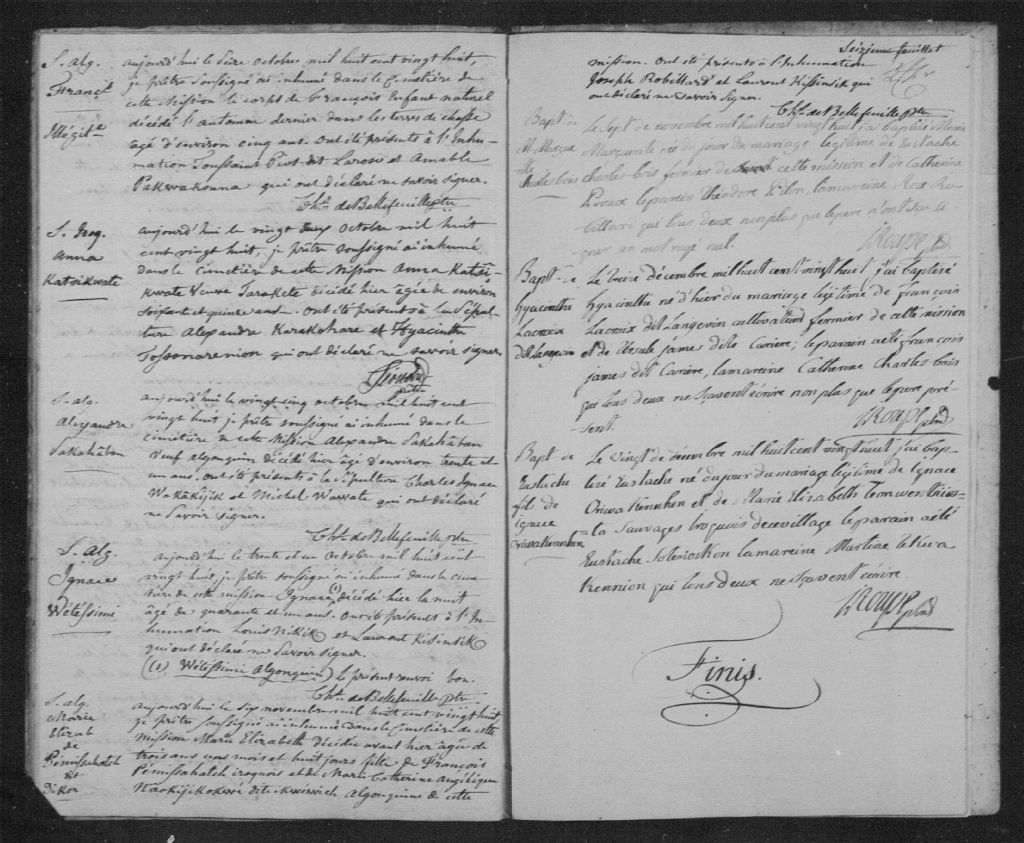 S. alg.
Franç.s
Illégite
aujourd'hui le seize octobre mil huit cent vingt huit,
je prêtre soussigné ai inhumé dans le Cimetière de
cette Mission le corps de François Enfant naturel
décédé l'automne dernier dans les terres de chasse
âgé d'environ cinq ans. Ont été présents à l'Inhu-
mation Toussaint dit Larose et Amable
Pakwakonna qui ont déclaré ne savoir signer.
Chs. de Bellefeuille ptre
S. Iroq.
Anna
Katsikwate
aujourd'hui le vingt octobre mil huit
cent vingt huit, je prêtre soussigné ai inhumé
dans le cimetière de cette Mission Anna Katsi-
kwate Veuve Tarakete décédé hier âgée de environ
soixante et quinze ans. Ont été présents à la Sépul-
ture Alexandre Karakohare et Hyacinthe
qui ont déclaré ne savoir signer
ptre
S. alg.
Alexandre
Pakahatan
aujourd'hui le vingt cinq octobre mil huit cent
vingt huit je prêtre soussigné ai inhumé dans le
cimetière de cette Mission Alexandre Pakahatan
veuf algonquin décédé hier âgé d'environ trente et
un ans. Ont été présents à la Sépulture Charles Ignace
Wakakijik et Michel Wawate qui ont déclaré
ne savoir signer.
Chs. de Bellefeuille ptre
S. Alg.
Ignace
Wétéssimi
aujourd'hui le trente et un octobre mil huit cent
vingt huit, je prêtre soussigné ai inhumé dans le cime
tière de cette mission Ignace décédé hier la nuit
âgé de quarante et un ans. Ont été présents à l'In-
humation Louis Nikik et Laurent Kisinsik
qui ont déclaré ne savoir signer.
(1) Wétéssimi Algonquin) le présent renvoi bon.
Chs. de Bellefeuille ptre
S. alg.
Marie
Elizab
de
Pémissahatch
et
Dikor
aujourd'hui le six novembre mil huit cent vingt huit,
je prêtre soussigné ai inhumé dans le cimetière de cette
Mission Marie Elizabeth décédée avant hier âgée de
trois ans mois et huit jours fille de François
Pémissahatch iroquois et de Marie Catherine Angélique
dite algonquine de cette
Seizieme feuillet
mission. Ont été présents à l'Inhumation
Joseph Robillard et Laurent Kissinsik qui
ont déclaré ne savoir signer.
Chs. de Bellefeuille ptre
Bapt. de
M. Margue
rite
charles bois
Le sept de novembre mil huit cent vingt huit j'ai baptisé Marie
Marguerite née du jour du mariage légitime de Eustache
charles bois fermier de cette mission et de Catherine
Proux le parain Théodore Pilon, la maraine Rox Ro-
billard qui tous deux non plus que le pere n'ont su si-
gner un mot rayé nul.
Roupe ptre
Bapt. de
Hyacinthe
Lacroix
dit Langevin
Le treize décembre mil huit cent vingt huit j'ai baptisé
Hyacinthe né d'hier du mariage légitime de François
Lacroix dit Langevin cultivateur fermier de cette mission
et de Ursule James dite Carriere; le parain a été François
James dit Carriere, la maraine Catherine Charles bois
qui tous deux ne sçavent écrire non plus que le pere pré-
sent.
Roupe ptre
Bapt. de
Eustache
fils de
Ignace
Oriwakennhen
Le vingt de décembre mil huit cent vingt huit j'ai bap-
tisé Eustache né du jour du mariage légitime de Ignace
Oriwakennhen et de Marie Elizabeth
la Sauvages Iroquois de ce village le parain a été
Eustache la maraine Martine Tekwa
kennion qui tous deux ne sçavent écrire.
Roupe ptre
Finis.